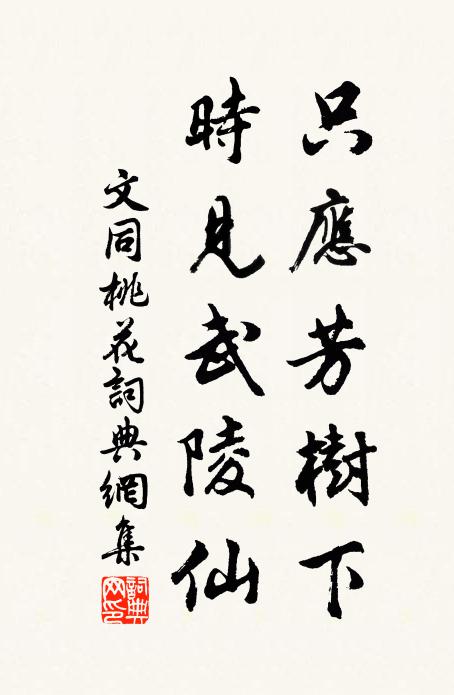 只應芳樹下
時見武陵仙
文同桃花詞典網集
詞典
网印